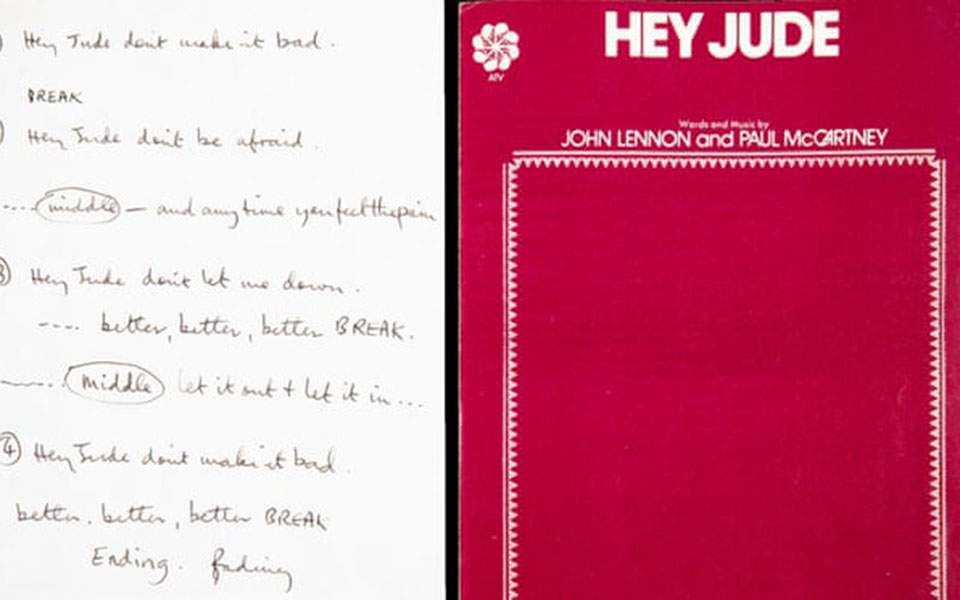 ) Hey Jude don't make it bad.
BREAK
) Hey Jude don't be afraid.
.... middle — and anytime you feel the pain
3 Hey Jude don't let me down.
---- better, better, better BREAK.
middle let it out + let it in ...
4 Hey Jude don't make it bad.
better. better, better BREAK
Ending. fading
ATV
HEY JUDE
Words and Music by
JOHN LENNON and PAUL McCARTNEY